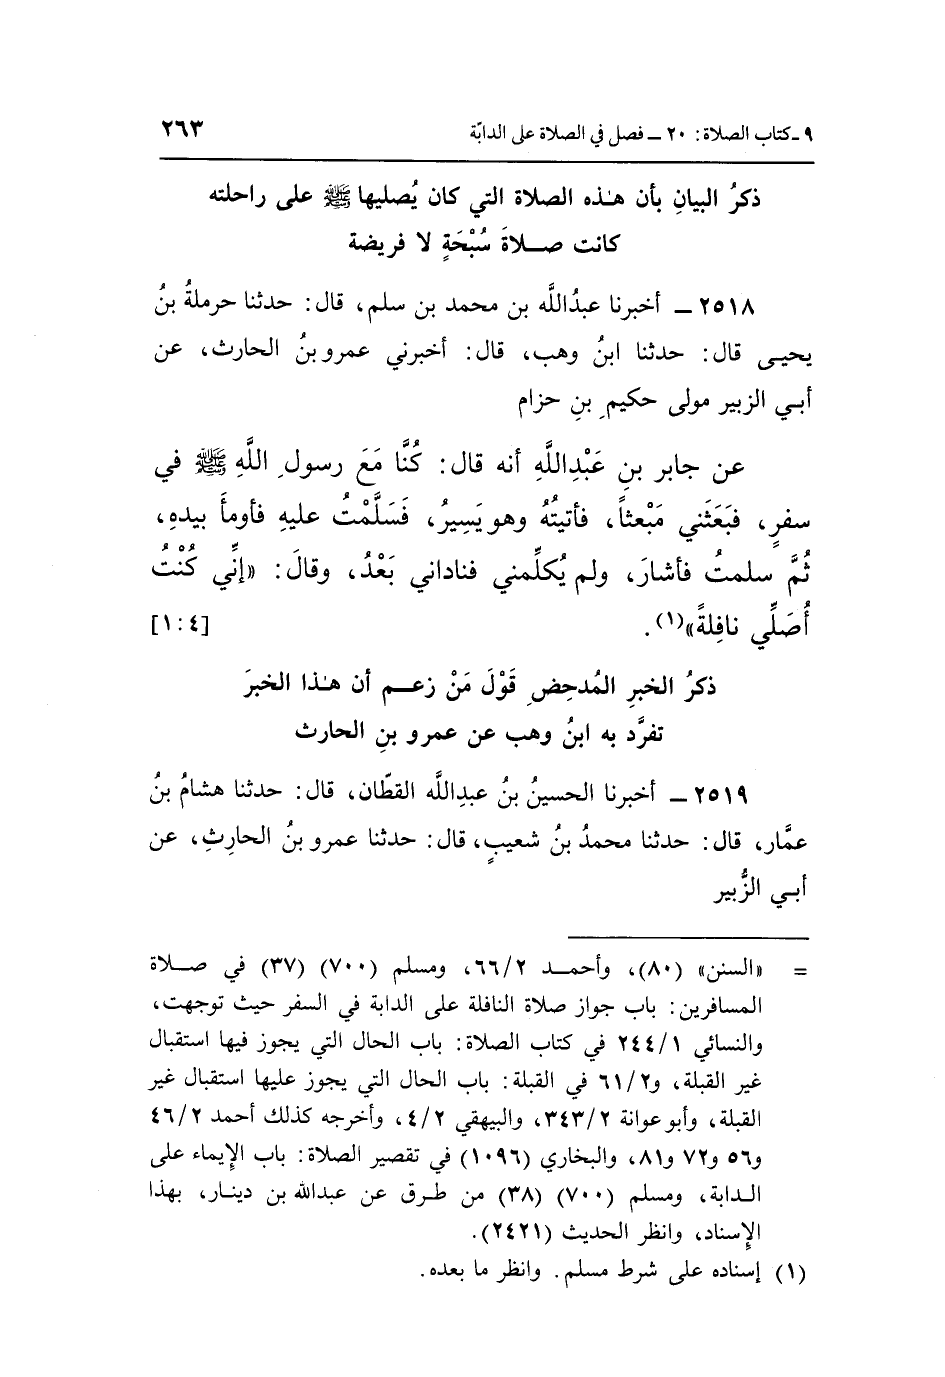 ٩ ـ كتاب الصلاة: ٢٠ ـ فصل في الصلاة على الدابّة ٢٦٣
ذكرُ البيانِ بأن هـٰذه الصلاة التي كان يُصليها ﷺ على راحلته
كانت صـلاةَ سُبْحَةٍ لا فريضة
٢٥١٨ ـ أخبرنا عبدُاللَّه بن محمد بن سلم، قال: حدثنا حرملةُ بنُ
يحيى قال: حدثنا ابنُ وهب، قال: أخبرني عمرو بنُ الحارث، عن
أبي الزبير مولى حكيمِ بنِ حزام
عن جابر بنِ عَبْدِاللَّهِ أنه قال: كُنَّا مَعَ رسولِ اللَّهِ ﷺ في
سفرٍ، فبَعَثَني مَبْعثاً، فأتيتُهُ وهو يَسِيرُ، فَسَلَّمْتُ عليهِ فأومأَ بيدهِ،
ثُمَّ سلمتُ فأشارَ، ولم يُكلِّمني فناداني بَعْدُ، وقالَ: «إنِّي كُنْتُ
أُصَلِّي نافِلةً»(١). [٤:١]
ذكرُ الخبرِ المُدحِضِ قَوْلَ مَنْ زعـم أن هـٰذا الخبرَ
تفرَّد به ابنُ وهب عن عمرو بنِ الحارث
٢٥١٩ ـ أخبرنا الحسينُ بنُ عبدِاللَّه القطّان، قال: حدثنا هشامُ بنُ
عمَّار، قال: حدثنا محمدُ بنُ شعيبٍ، قال: حدثنا عمرو بنُ الحارِثِ، عن
أبي الزُّبير
= «السنن» (٨٠)، وأحمـد ٦٦/٢، ومسلم (٧٠٠) (٣٧) في صـلاة
المسافرين: باب جواز صلاة النافلة على الدابة في السفر حيث توجهت،
والنسائي ٢٤٤/١ في كتاب الصلاة: باب الحال التي يجوز فيها استقبال
غير القبلة، و٦١/٢ في القبلة: باب الحال التي يجوز عليها استقبال غير
القبلة، وأبو عوانة ٣٤٣/٢، والبيهقي ٤/٢، وأخرجه كذلك أحمد ٤٦/٢
و٥٦ و٧٢ و٨١، والبخاري (١٠٩٦) في تقصير الصلاة: باب الإيماء على
الـدابة، ومسلم (٧٠٠) (٣٨) من طـرق عن عبدالله بن دينـار، بهذا
الإسناد، وانظر الحديث (٢٤٢١).
(١) إسناده على شرط مسلم. وانظر ما بعده.